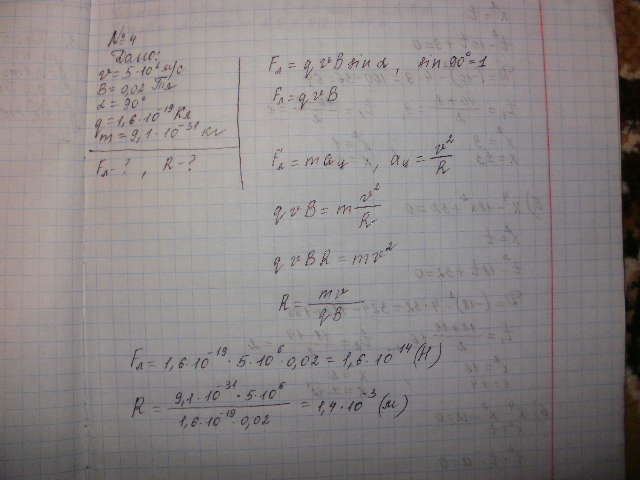 №4
Дано:
v = 5·10⁶ м/с
B = 0,02 Тл
α = 90°
q = 1,6·10⁻¹⁹ Кл
m = 9,1·10⁻³¹ кг
Fл - ? , R - ?
Fл = q v B sin α , sin 90° = 1
Fл = q v B
Fл = m aц , aц = v²/R
q v B = m v²/R
q v B R = m v²
R = mv/qB
Fл = 1,6·10⁻¹⁹ · 5·10⁶ · 0,02 = 1,6·10⁻¹⁴ (Н)
R = 9,1·10⁻³¹ · 5·10⁶ / 1,6·10⁻¹⁹ · 0,02 = 1,4·10⁻³ (м)